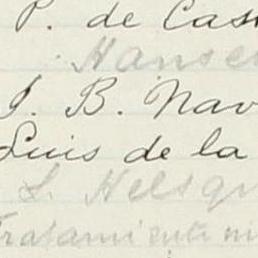 P. de Cas
Hansen
J. B. Nav
Luis de la
L. Helsqu
Tratamiento